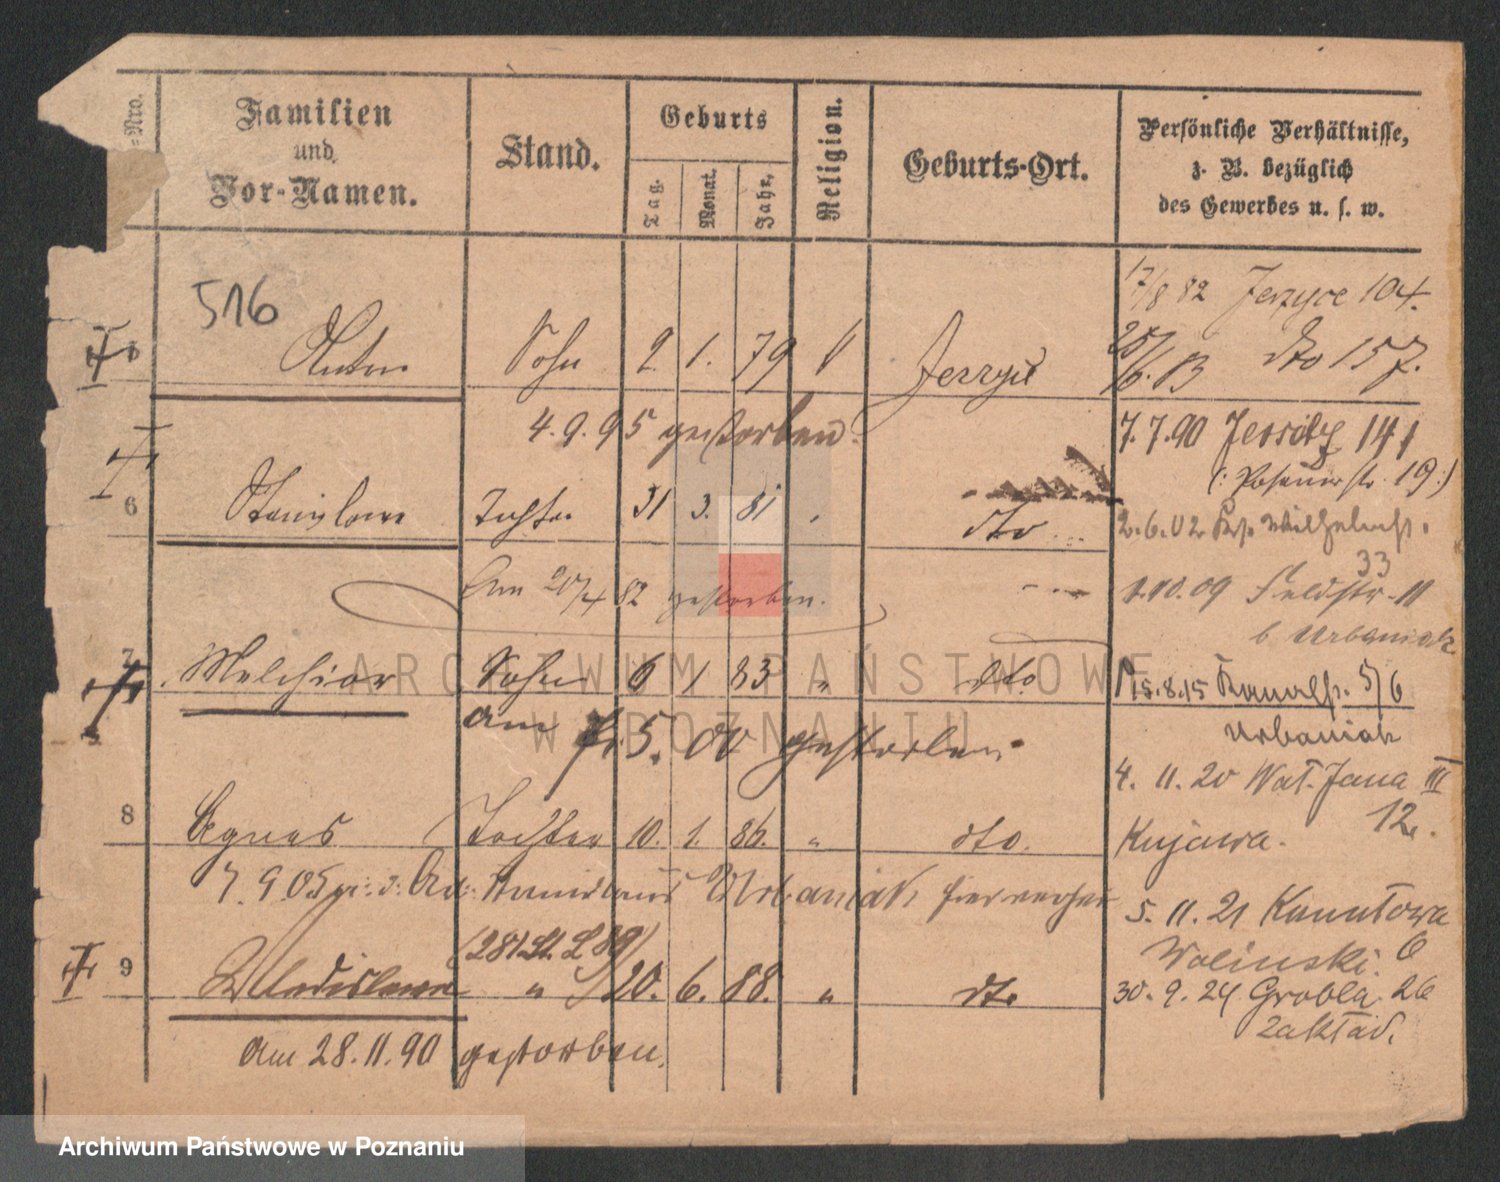 -Nro.
Familien
und
Vor-Namen.
Stand.
Geburts
Tag.
Monat.
Jahr.
Religion.
Geburts-Ort.
Persönliche Verhältnisse,
z. B. bezüglich
des Gewerbes u. s. w.
516
17/8 82 Jerzyce 104.
Anton Sohn 2. 1. 79 Jerzyce
dto 157.
4.9.95 gestorben.
7.7.90 Jersitz 141
(: Posenerstr. 19:)
6 Stanislawa Tochter 31 3. 81 dto
2.6.02 Wilhelmst.
33
Am 20/4 82 gestorben.
1.10.09 Feldstr. 11
b. Urbaniak
7 Melchior Sohn 6 1 83 " dto.
15.8.15 Kanalst. 5/6
Urbaniak
am 7.5.00 gestorben.
4. 11. 20 Wat. Jana III
12.
8 Agnes Tochter 10. 1. 86. " dto.
Kujawa.
7.9.05 Stanislaus Urbaniak
5. 11. 21 Kanałowa
6
Wolinski.
(281 St. L 89)
9 Wladislawa " 20. 6. 88. " dto
30. 9. 24 Grobla 26
zakład.
Am 28.11.90 gestorben.
ARCHIWUM PAŃSTWOWE
W POZNANIU
Archiwum Państwowe w Poznaniu